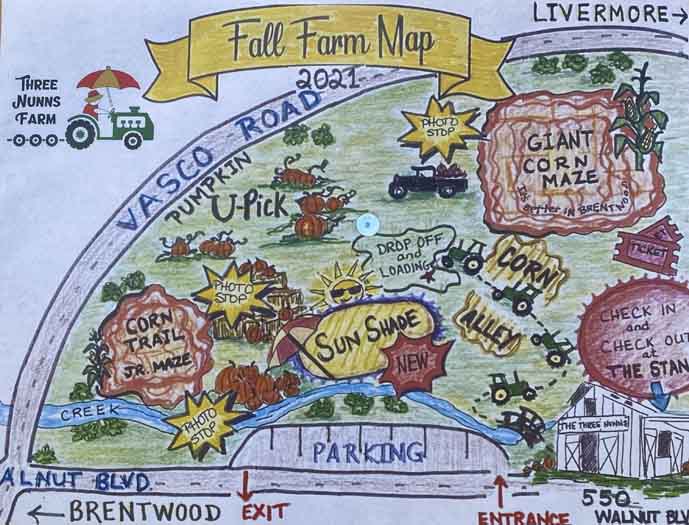 LIVERMORE
Fall Farm Map
2021
THREE
NUNNS
FARM
VASCO ROAD
PHOTO
STOP
GIANT
CORN
MAZE
BRENTWOOD
PUMPKIN
U-Pick
DROP OFF
and
LOADING
CORN
ALLEY
TICKET
PHOTO
STOP
CORN
TRAIL
JR. MAZE
SUN SHADE
NEW
CHECK IN
and
CHECK OUT
at
THE STAN
CREEK
PHOTO
STOP
PARKING
THE THREE NUNNS
ALNUT BLVD.
BRENTWOOD
EXIT
ENTRANCE
550
WALNUT BLV